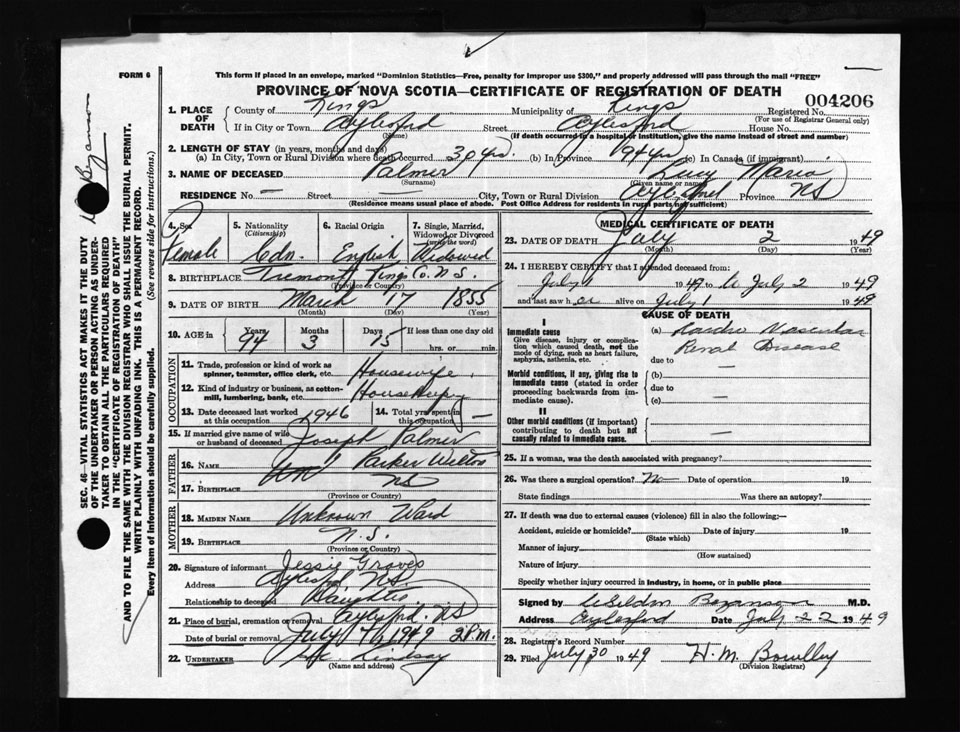 FORM 6
This form if placed in an envelope, marked "Dominion Statistics—Free, penalty for improper use $300," and properly addressed will pass through the mail "FREE"
PROVINCE OF NOVA SCOTIA—CERTIFICATE OF REGISTRATION OF DEATH
004206
1. PLACE OF DEATH County of Kings Municipality of Kings Registered No.
(For use of Registrar General only)
If in City or Town Aylesford Street Aylesford House No.
(Name) (If death occurred in a hospital or institution, give the name instead of street and number)
2. LENGTH OF STAY (in years, months and days)
(a) In City, Town or Rural Division where death occurred 30 yrs. (b) In Province 94 yrs (c) In Canada (if immigrant)
3. NAME OF DECEASED Palmer Lucy Maria
(Surname) (Given name or names)
RESIDENCE No. — Street — City, Town or Rural Division Aylesford Province NS
(Residence means usual place of abode. Post Office Address for residents in rural parts not sufficient)
4. Sex 5. Nationality 6. Racial Origin 7. Single, Married, Widowed or Divorced
(Citizenship) (write the word)
Female Cdn. English Widowed
8. BIRTHPLACE Tremont Kings Co. N.S.
(Province or Country)
9. DATE OF BIRTH March 17 1855
(Month) (Day) (Year)
10. AGE in Years Months Days If less than one day old
94 3 15 hrs. or min.
OCCUPATION
11. Trade, profession or kind of work as spinner, teamster, office clerk, etc. Housewife
12. Kind of industry or business, as cotton-mill, lumbering, bank, etc. Housekeeping
13. Date deceased last worked at this occupation 1946 14. Total yrs. spent in this occupation —
15. If married give name of wife or husband of deceased Joseph Palmer
FATHER
16. NAME Parker Welton
17. BIRTHPLACE NS
(Province or Country)
MOTHER
18. MAIDEN NAME Unknown Ward
19. BIRTHPLACE N.S.
(Province or Country)
20. Signature of informant Jessie Graves
Address Aylesford NS.
Relationship to deceased Daughter
21. Place of burial, cremation or removal Aylesford. NS
Date of burial or removal July 4, 1949 2 P.M.
22. UNDERTAKER Lindsay
(Name and address)
MEDICAL CERTIFICATE OF DEATH
23. DATE OF DEATH July 2 1949
(Month) (Day) (Year)
24. I HEREBY CERTIFY that I attended deceased from:
July 1 1949 to July 2 1949
and last saw her alive on July 1 1949
CAUSE OF DEATH
I
Immediate cause (a) Cardio Vascular
Renal Disease
Give disease, injury or complication which caused death, not the mode of dying, such as heart failure, asphyxia, asthenia, etc. due to
Morbid conditions, if any, giving rise to immediate cause (stated in order proceeding backwards from immediate cause). (b) —
due to
(c) —
II
Other morbid conditions (if important) contributing to death but not causally related to immediate cause. —
25. If a woman, was the death associated with pregnancy?
26. Was there a surgical operation? No Date of operation 19
State findings Was there an autopsy?
27. If death was due to external causes (violence) fill in also the following:—
Accident, suicide or homicide? Date of injury 19
(State which)
Manner of injury
(How sustained)
Nature of injury
Specify whether injury occurred in industry, in home, or in public place
Signed by Bezanson M.D.
Address Aylesford Date July 22 1949
28. Registrar's Record Number
29. Filed July 30 1949 H. M.
(Division Registrar)
SEC. 46—VITAL STATISTICS ACT MAKES IT THE DUTY
OF THE UNDERTAKER OR PERSON ACTING AS UNDER-
TAKER TO OBTAIN ALL THE PARTICULARS REQUIRED
IN THE "CERTIFICATE OF REGISTRATION OF DEATH"
AND TO FILE THE SAME WITH THE DIVISION REGISTRAR WHO SHALL ISSUE THE BURIAL PERMIT.
WRITE PLAINLY WITH UNFADING INK. THIS IS A PERMANENT RECORD.
Every item of Information should be carefully supplied. (See reverse side for instructions.)